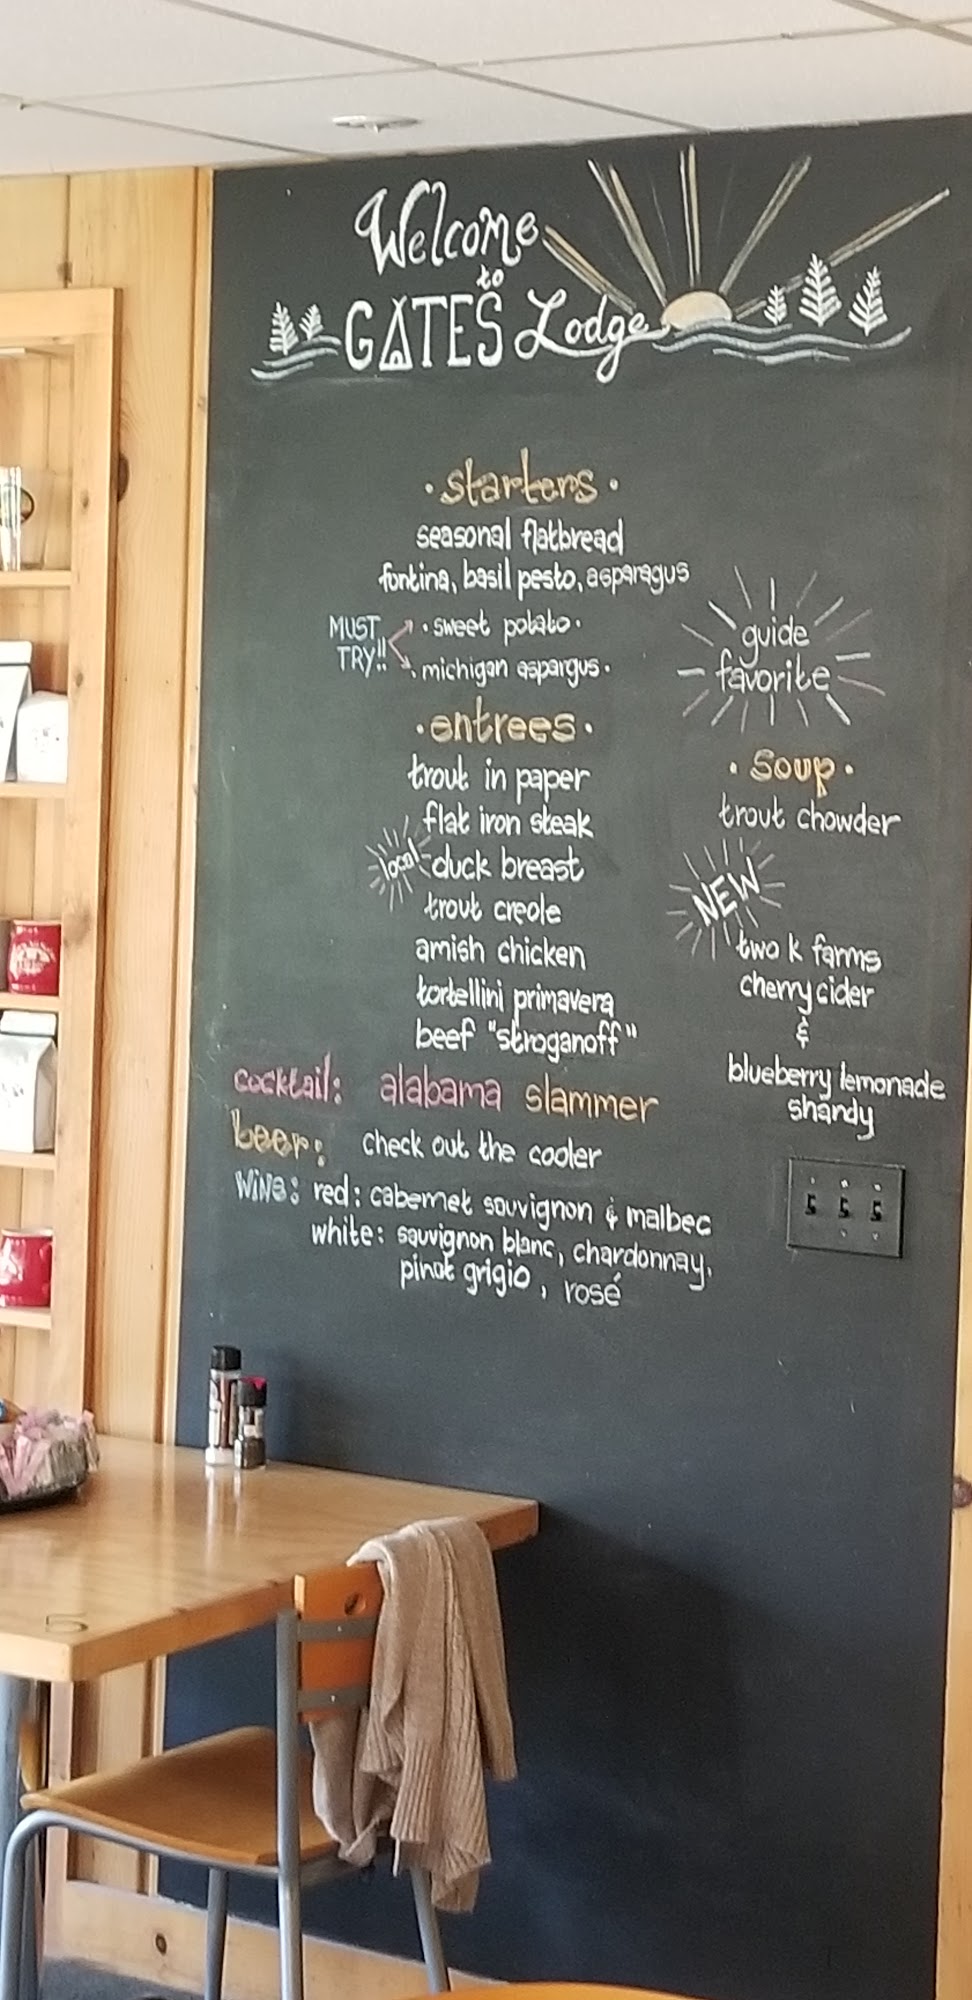 Welcome
to
GATES Lodge
· starters ·
seasonal flatbread
fontina, basil pesto, asparagus
MUST
TRY!!
· sweet potato ·
· michigan aspargus ·
guide
favorite
· entrees ·
trout in paper
flat iron steak
local
duck breast
trout creole
amish chicken
tortellini primavera
beef "stroganoff"
· soup ·
trout chowder
NEW
two k farms
cherry cider
&
blueberry lemonade
shandy
cocktail: alabama slammer
beer: check out the cooler
wine: red: cabernet sauvignon & malbec
white: sauvignon blanc, chardonnay,
pinot grigio, rosé